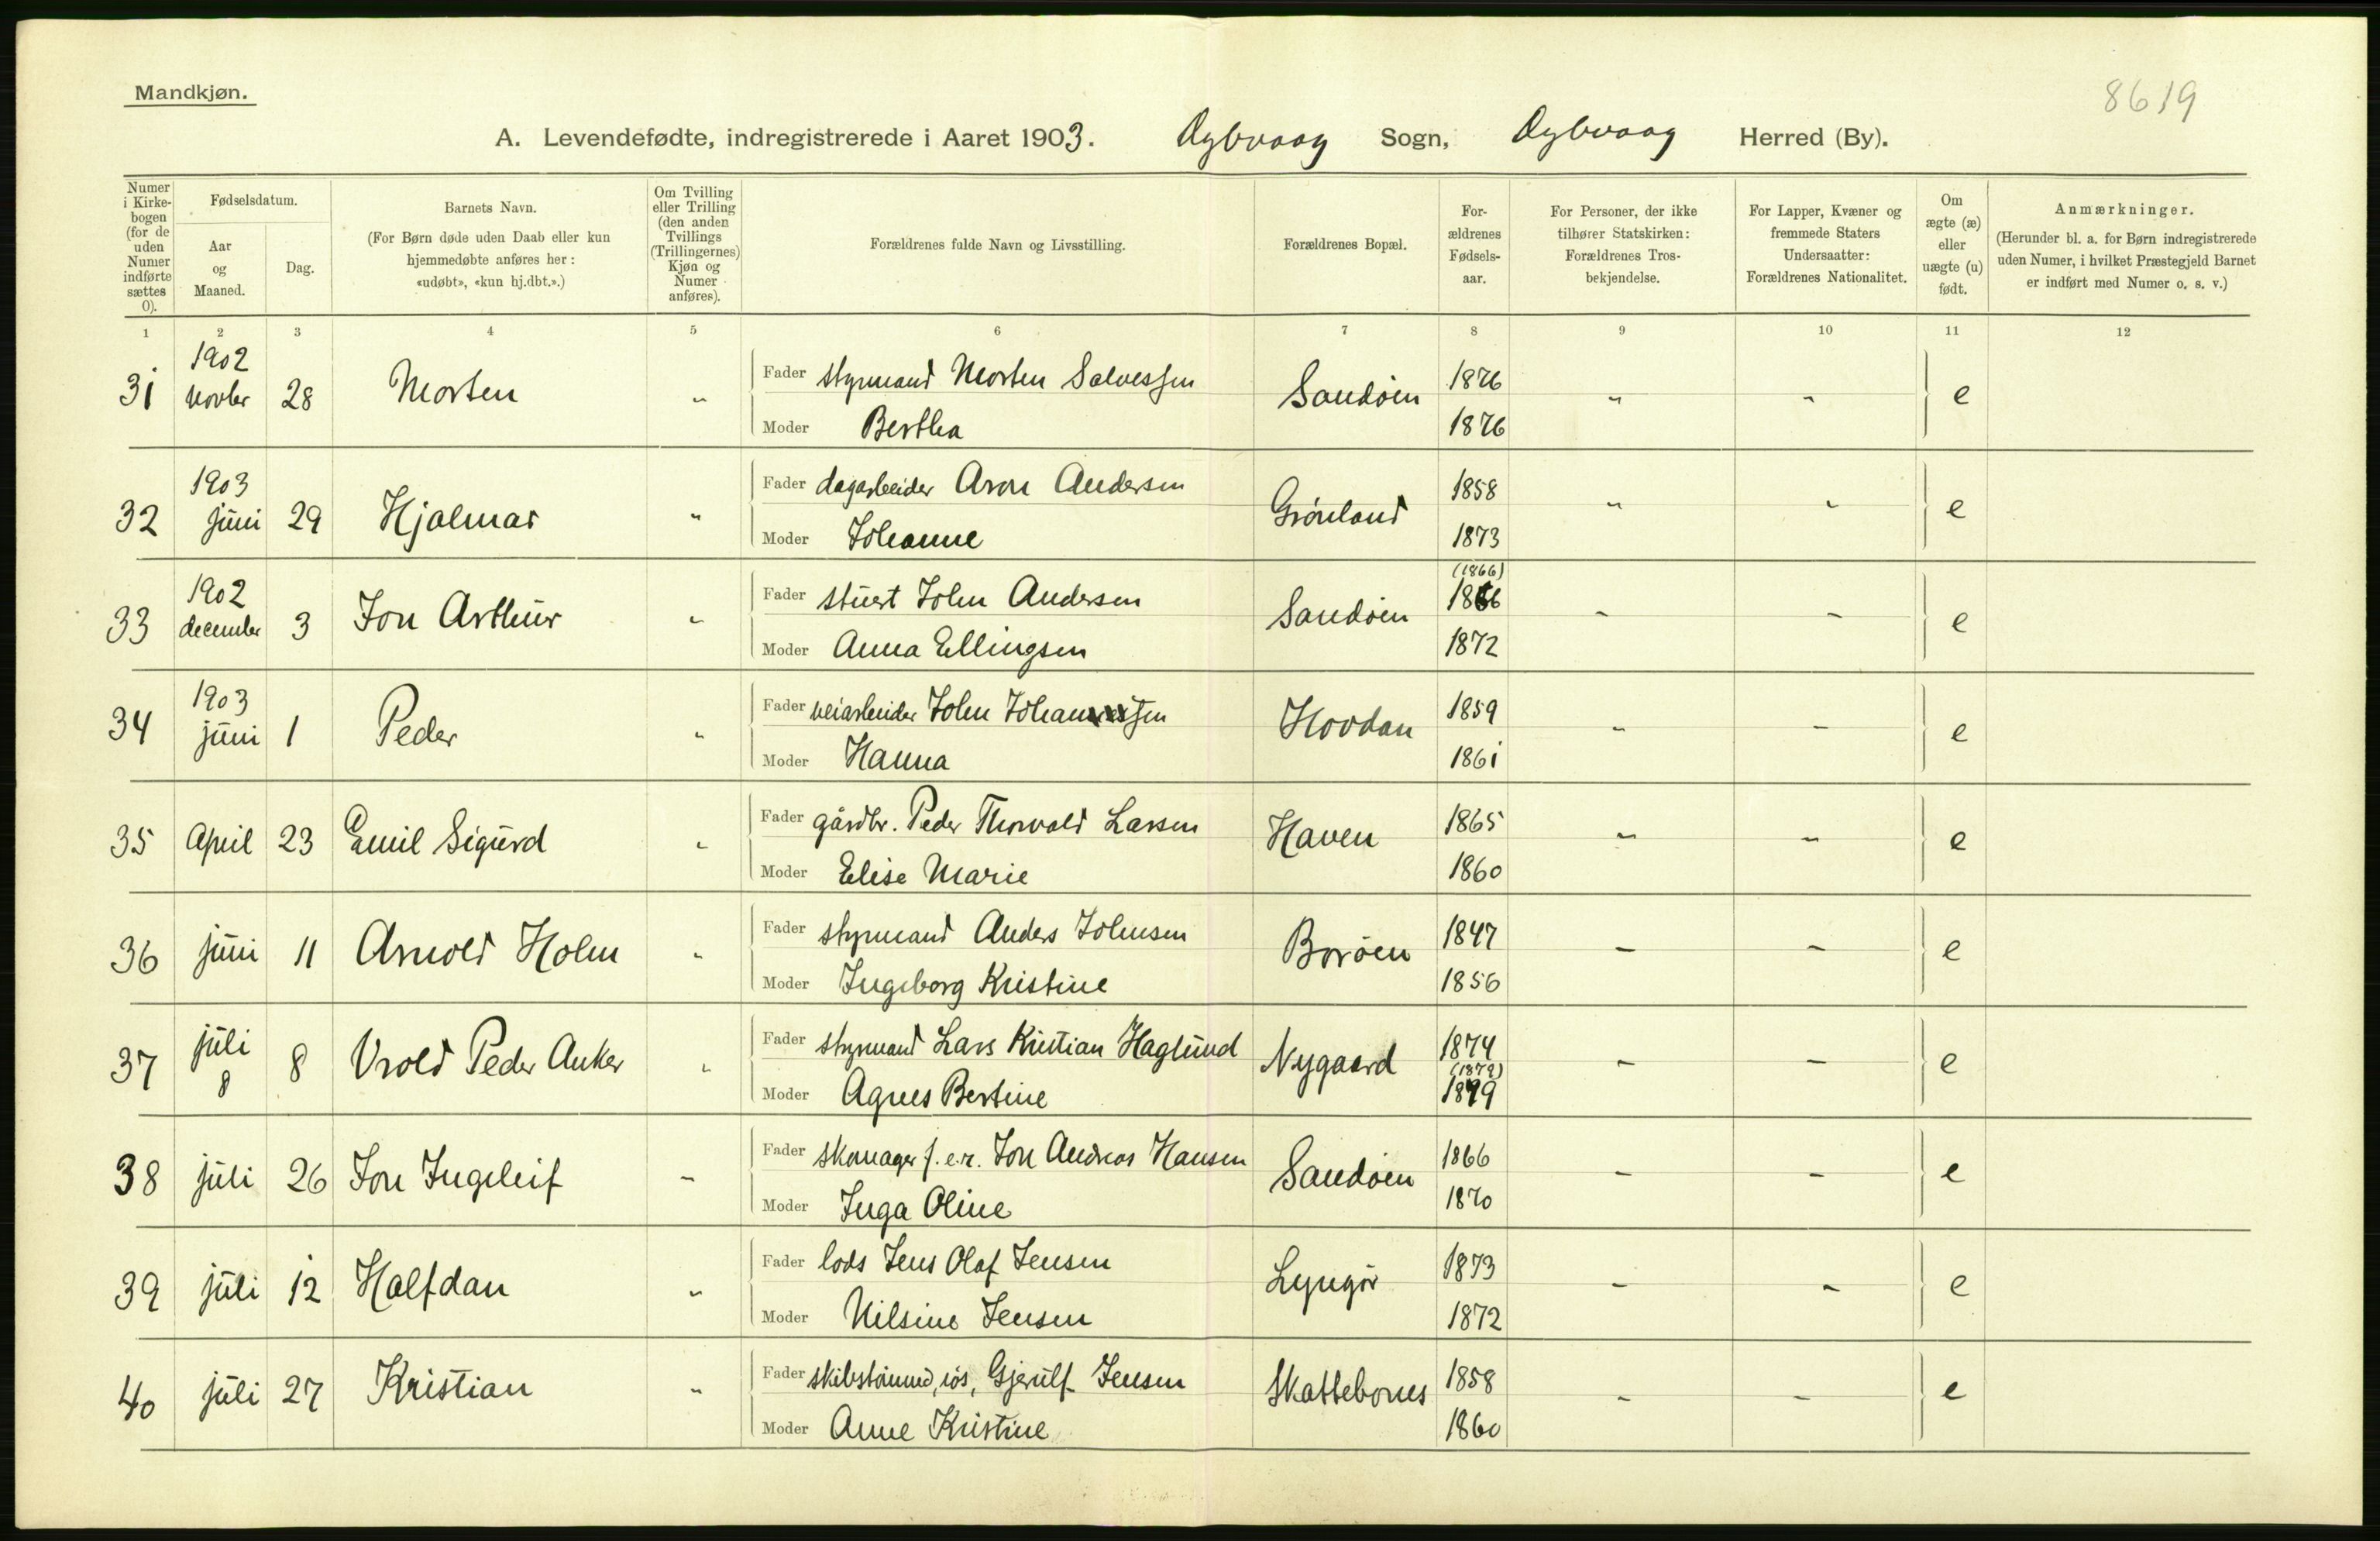 Mandkjøn.
8619
A. Levendefødte, indregistrerede i Aaret 1903. Dybvaag Sogn, Dybvaag Herred (By).
Numer i Kirkebogen (for de uden Numer indførte sættes 0).
Fødselsdatum.
Aar og Maaned.
Dag.
Barnets Navn.
(For Børn døde uden Daab eller kun hjemmedøbte anføres her: «udøbt», «kun hj.dbt.».)
Om Tvilling eller Trilling (den anden Tvillings (Trillingernes) Kjøn og Numer anføres).
Forældrenes fulde Navn og Livsstilling.
Forældrenes Bopæl.
For-
ældrenes
Fødsels-
aar.
For Personer, der ikke
tilhører Statskirken:
Forældrenes Tros-
bekjendelse.
For Lapper, Kvæner og
fremmede Staters
Undersaatter:
Forældrenes Nationalitet.
Om
ægte (æ)
eller
uægte (u)
født.
Anmærkninger.
(Herunder bl. a. for Børn indregistrerede
uden Numer, i hvilket Præstegjeld Barnet
er indført med Numer o. s. v.)
1 2 3 4 5 6 7 8 9 10 11 12
31 1902 novbr 28 Morten " Fader styrmand Morten Salvessen Sandøen 1876 " " e
Moder Bertha 1876
32 1903 juni 29 Hjalmar " Fader dagarbeider Aron Andersen Grønland 1858 " " e
Moder Johanne 1873
33 1902 december 3 Jon Arthur " Fader stuert John Andersen Sandøen (1866) 1866 - - e
Moder Anna Ellingsen 1872
34 1903 juni 1 Peder " Fader veiarbeider John Johannessen Hovdan 1859 " - e
Moder Hanna 1861
35 April 23 Emil Sigurd " Fader gårdbr. Peder Thorvald Larsen Haven 1865 " " e
Moder Elise Marie 1860
36 juni 11 Arnold Holm " Fader styrmand Anders Johnsen Borøen 1847 - - e
Moder Ingeborg Kristine 1856
37 juli 8 8 Vrold Peder Anker " Fader styrmand Lars Kristian Haglund Nygaard 1874 - - e
Moder Agnes Bertine (1879) 1879
38 juli 26 Jon Ingeleif - Fader skomager f.e.r. Jon Andreas Hansen Sandøen 1866 - - e
Moder Inga Oline 1870
39 juli 12 Halfdan " Fader lods Jens Olaf Jensen Lyngør 1873 - - e
Moder Nilsine Jensen 1872
40 juli 27 Kristian " Fader skibstømmed, løs, Gjerulf Jensen Skattebones 1858 - - e
Moder Anne Kristine 1860